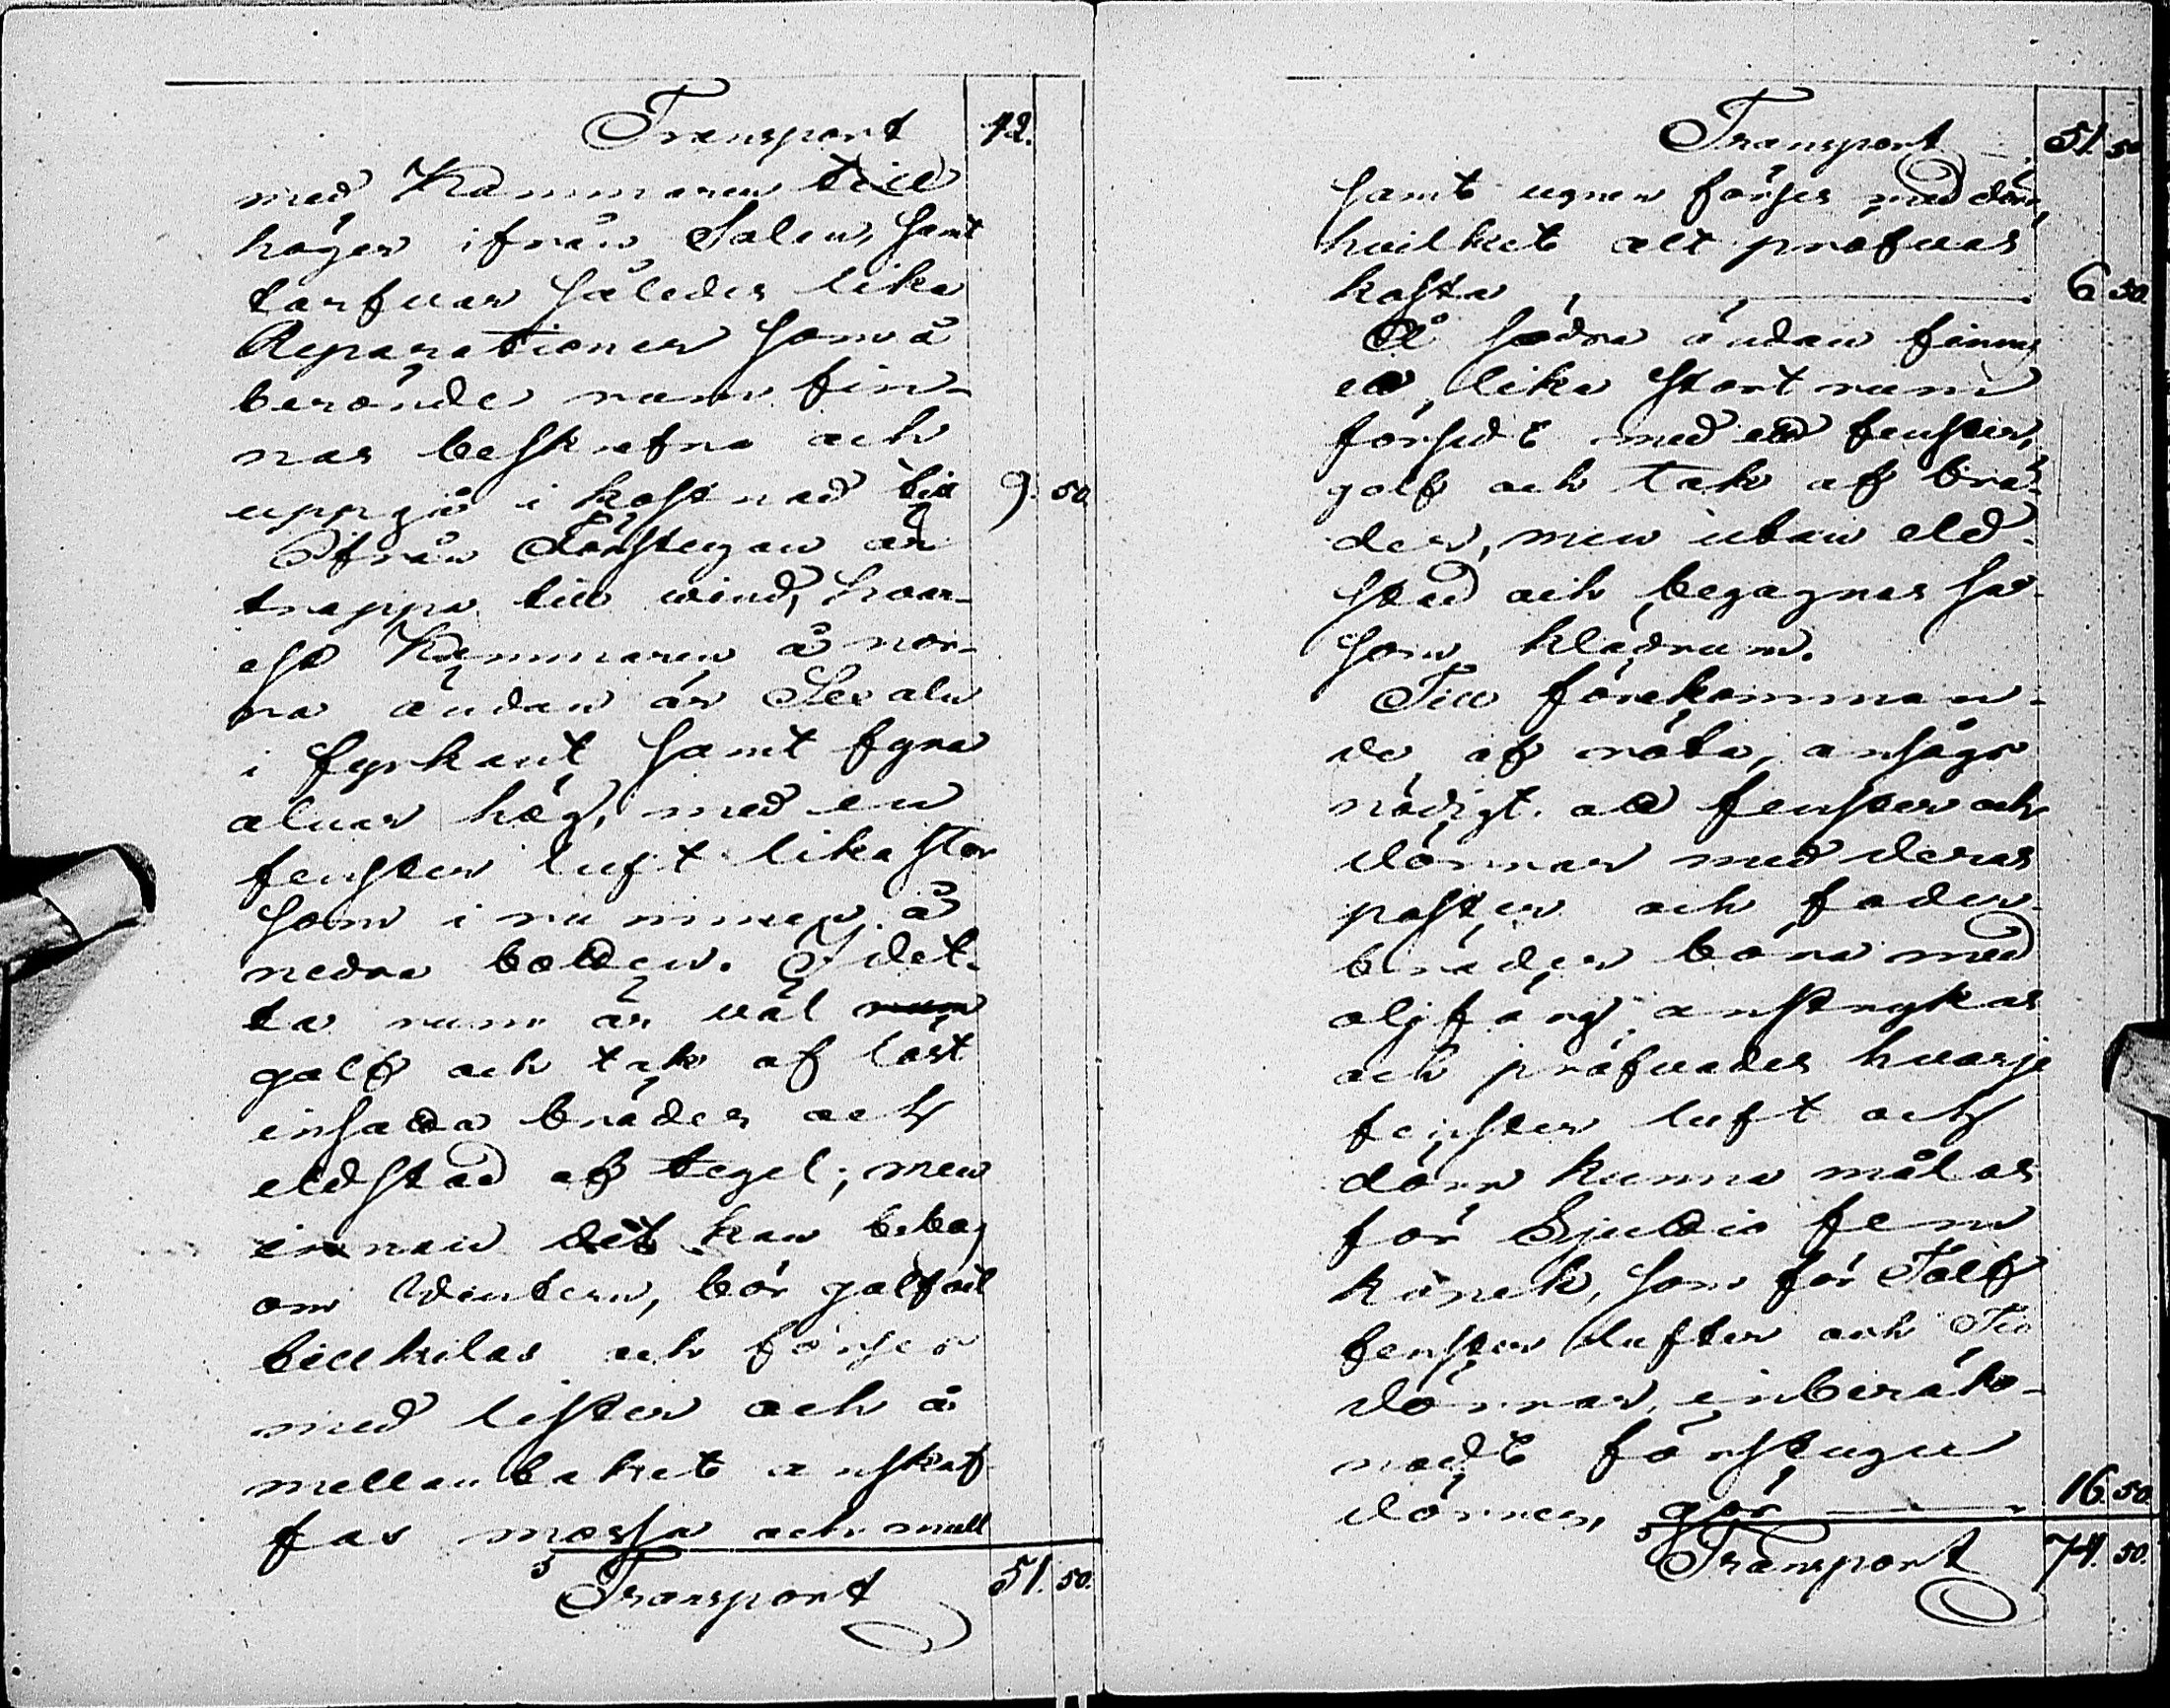 Transport 42.
med Kammaren till
höger ifrån Salen, samt
tarfvar således lika
Reparationer som å
berörde rum fin-
nas beskrefna och
uppgå i kostnad till 9. 50.
Ifrån Förstugan är
trappa till wind, hvar-
est Kammaren å nor-
ra ändan är Sex aln
i fyrkant samt fyra
alnar hög, med en
fenster luft lika stor
som i rummen å
nedra botten. I det-
ta rum är väl rum
golf och tak af löst
insatta bräder och
eldstad af tegel; men
innan det kan bebos
om Vintern, bör golfvet
tillkilas och förses
med lister och å
mellantaket anskaf-
fas mossa och mull
Transport 51. 50.
Transport 51. 50
samt ugnen förses med dörr,
hvilket alt pröfvas
kosta 6 50.
Å södra ändan finnes
ett lika stort rum
försedt med ett fenster,
golf och tak af brä-
der, men utan eld-
stad och begagnas så-
som klädrum.
Till förekomman-
de af röta, ansågs
nödigt att fenster och
dörrar med deras
poster och foder-
bräder böra med
oljfärg anstrykas
och pröfvades hvarje
fenster luft och
dörr kunna målas
för Sjuttio fem
kopek, som för Tolf
fenster lufter och Tio
dörrar, inberäk-
nadt förstugu
dörren, gör 16. 50.
Transport 74. 50.